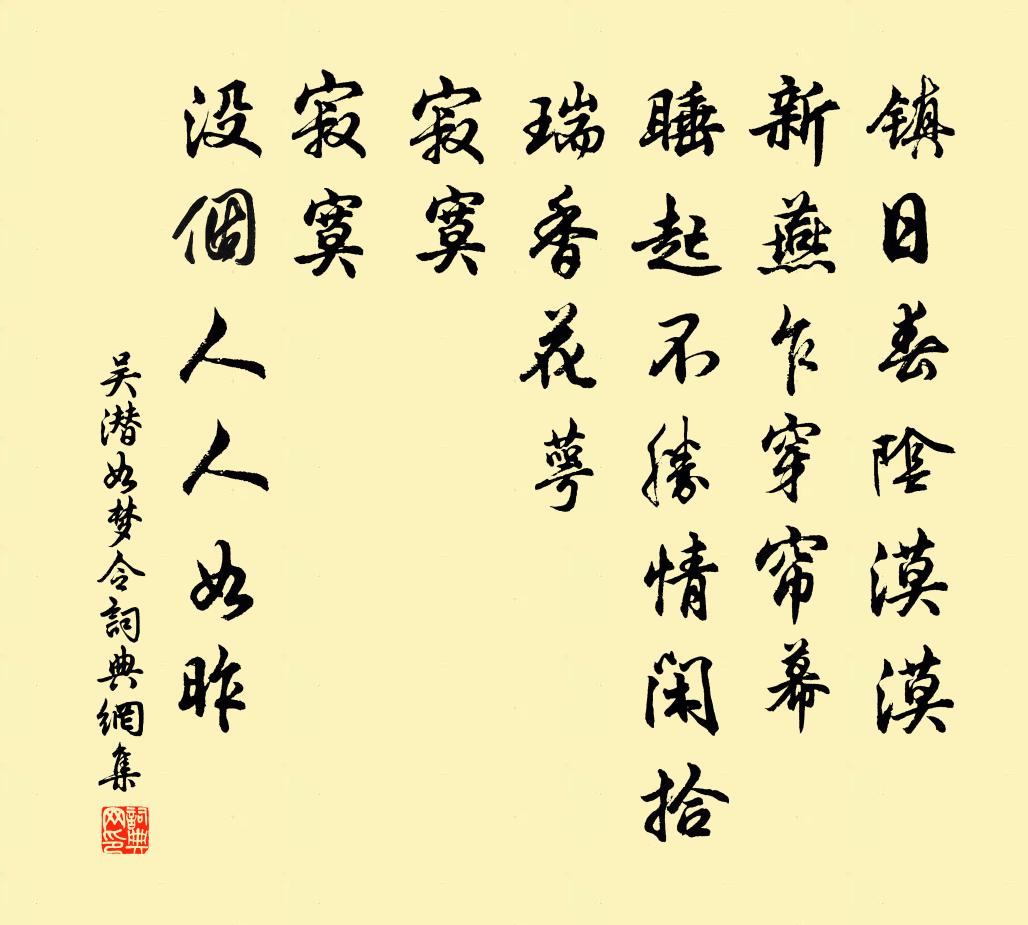 镇日春陰漠漠
新燕乍穿帘幕
睡起不勝情閑拾
瑞香花萼
寂寞
寂寞
没個人人如昨
吴潜如梦令詞典網集
詞典网印